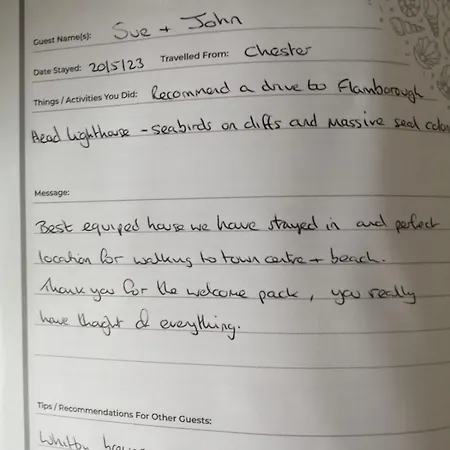 Guest Name(s): Sue + John
Date Stayed: 20/5/23 Travelled From: Chester
Things / Activities You Did: Recommend a drive to Flamborough
Head lighthouse - seabirds on cliffs and massive seal
Message:
Best equiped house we have stayed in and perfect
location for walking to town centre + beach.
Thank you for the welcome pack, you really
have thaght of everything.
Tips / Recommendations For Other Guests:
Whitby